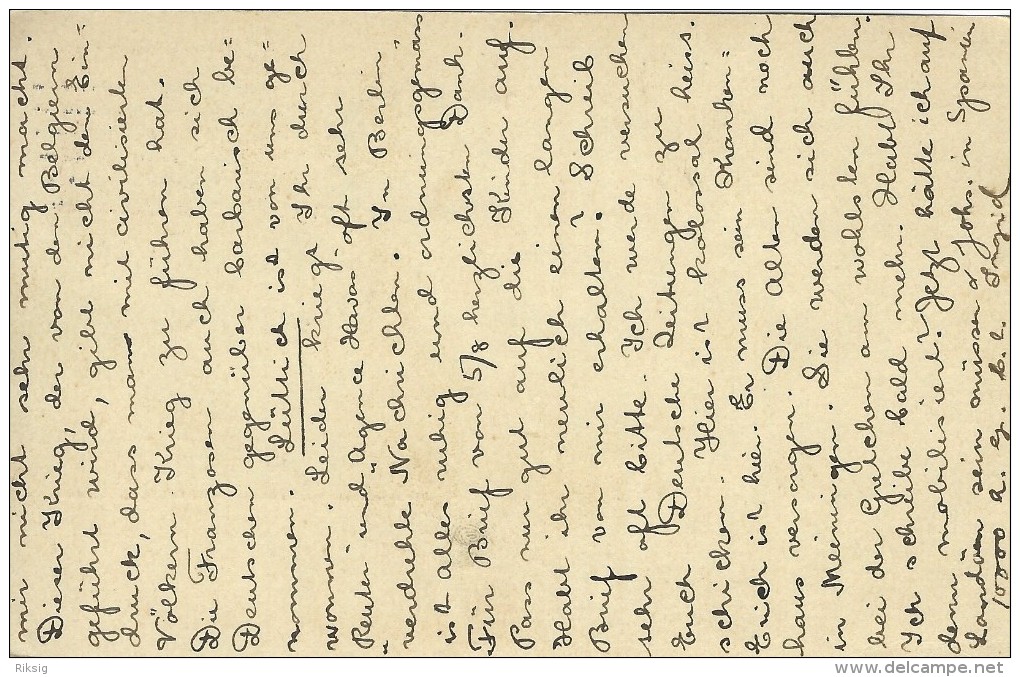 mir nicht sehr mutig macht.
Dieser Krieg, der von den Belgiern
geführt wird, gibt nicht den Ein=
druck, dass man mit civilisierten
Völkern Krieg zu führen hat.
Die Franzosen auch haben sich
Deutschen gegenüber barbarisch be=
nommen. Lüttich ist von uns ge=
wonnen. Leider kriegt Ihr durch
Reuter- und "Agence Havas" oft sehr
verdrehte Nachrichten. In Berlin
ist alles ruhig und ordnungsgemäss
Für Brief vom 5/8 herzlichsten Dank.
Pass nur gut auf die Kinder auf.
Habt ihr neulich einen langen
Brief von mir erhalten? Schreib
sehr oft bitte. Ich werde versuchen
Euch Deutsche Zeitungen zu
schicken. Hier ist kolossal heiss.
Erich ist hier. Er muss sein Kranken=
haus versorgen. Die Alten sind noch
in Meiningen. Sie werden sich auch
bei der Gretchen am wohlsten fühlen.
Ich schreibe bald mehr. Habt Ihr
denn mobilisiert? Jetzt hätte ich auf
Landöen sein müssen & Johs. in Spanien
10000 a. g. b. l. Ingrid
Riksig
delcampe.net